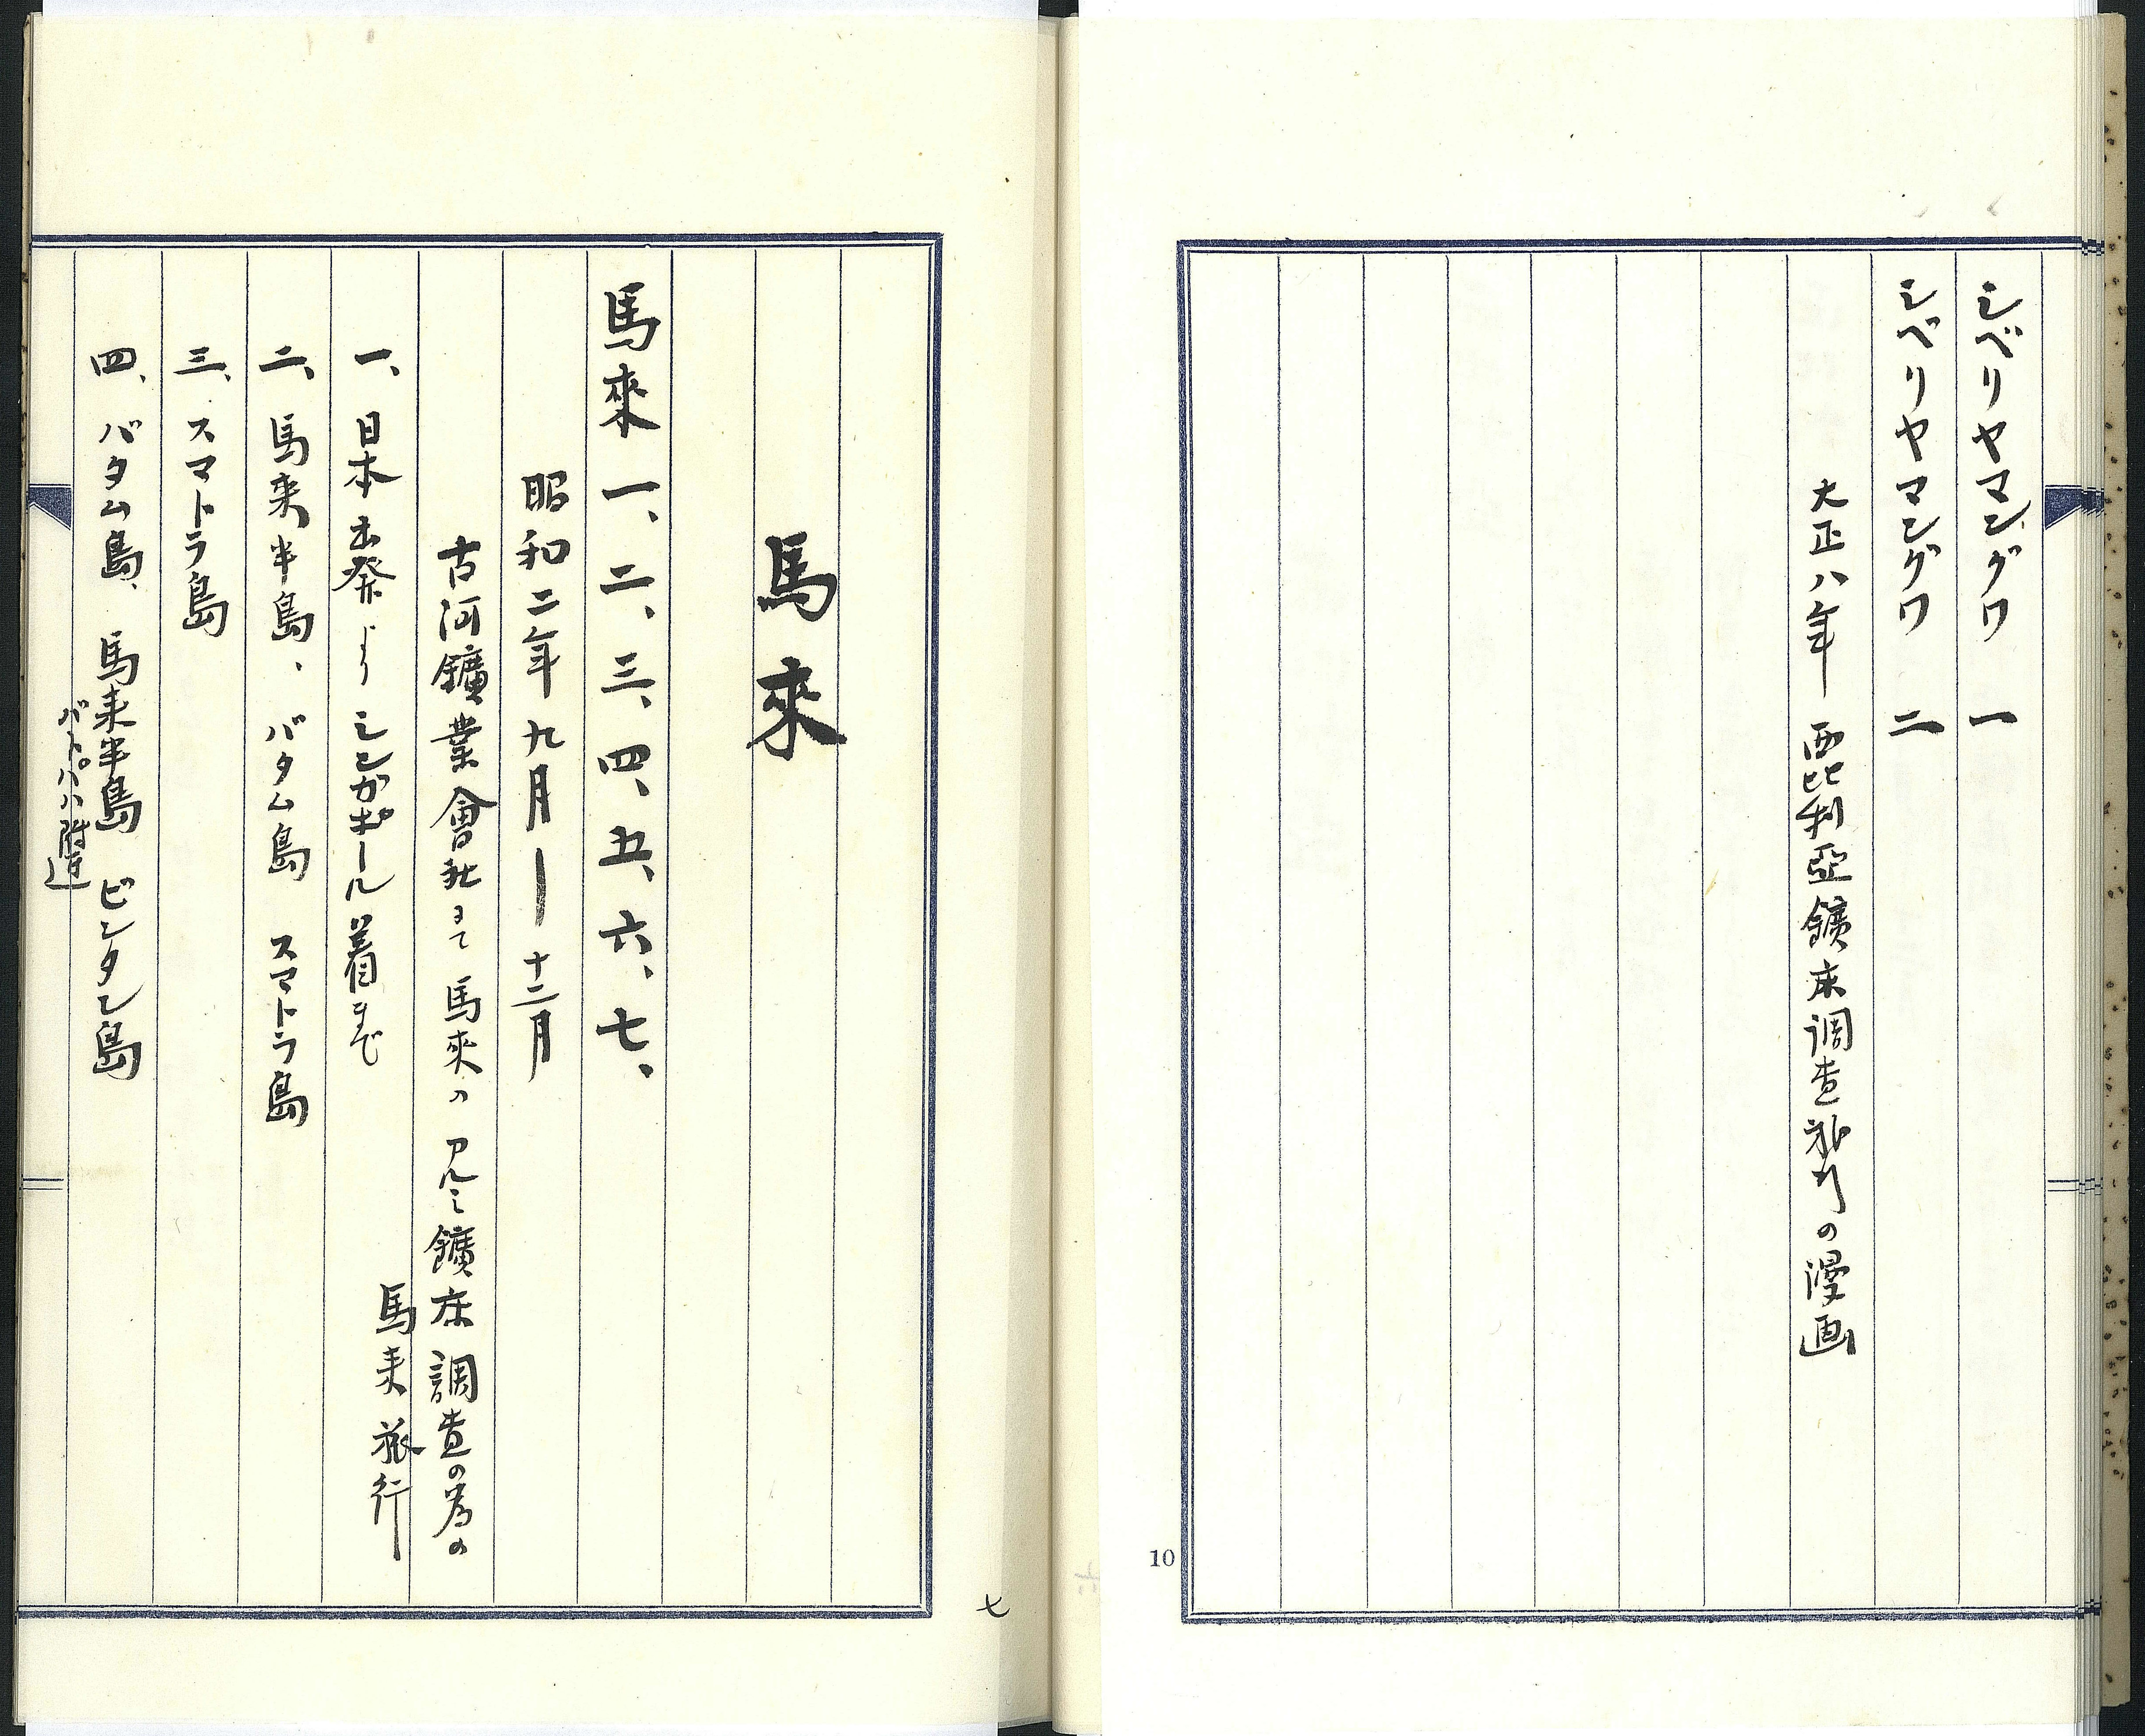 シベリヤマングワ 一
シベリヤマングワ 二
大正八年 西比利亞鑛床調査旅行の漫画
10
馬來
馬來 一、二、三、四、五、六、七、
昭和二年九月ー十二月
古河鑛業會社にて 馬來の アルミ鑛床 調査の為の
馬来旅行
一、日本出発より シンガポール着まで
二、馬来半島、 バタム島 スマトラ島
三、スマトラ島
四、バタム島、 馬来半島 ビンタン島
バトパハ附近
七